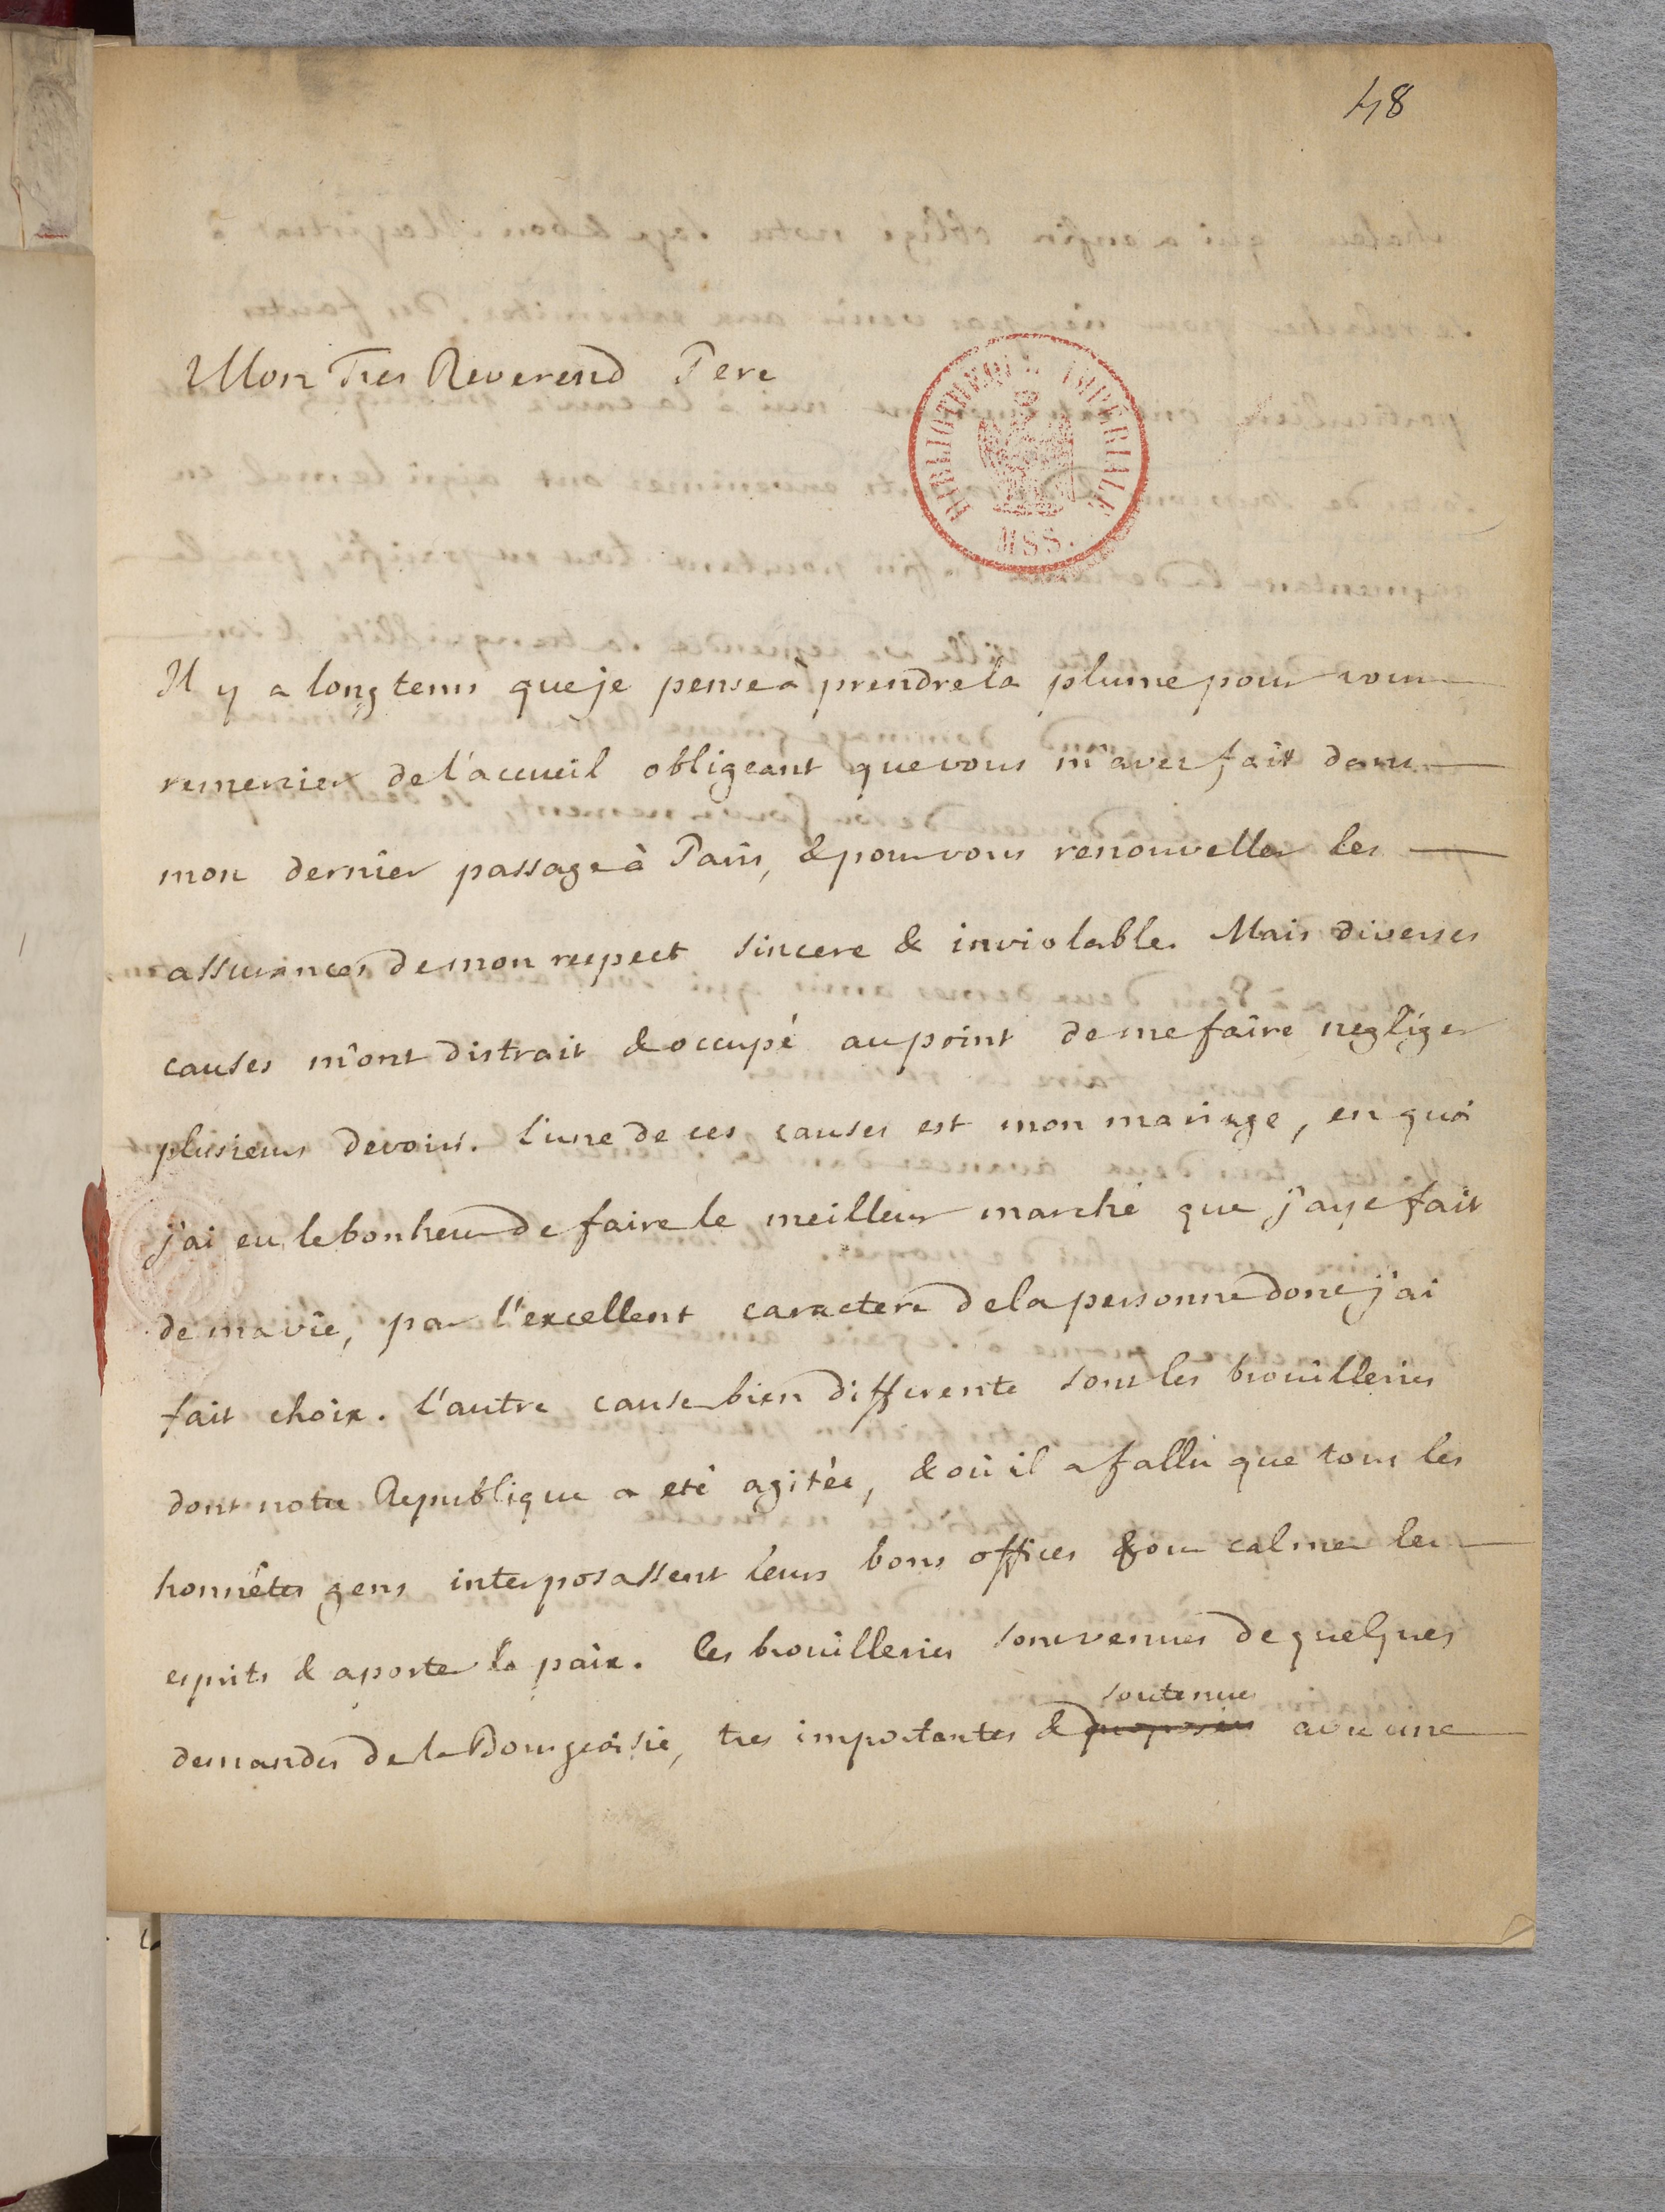 48
Mon Tres Reverend Pere
BIBLIOTHEQUE IMPERIALE
MSS.
Il y a long tems que je pense à prendre la plume pour vous
remercier de l'accueil obligeant que vous m'avez fait dans
mon dernier passage à Paris, & pour vous renouveller les
assurances de mon respect sincere & inviolable. Mais diverses
causes m'ont distrait & occupé au point de me faire negliger
plusieurs devoirs. L'une de ces causes est mon mariage, en quoi
j'ai eu le bonheur de faire le meilleur marché que j'aye fait
de ma vie, par l'excellent caractere de la personne dont j'ai
fait choix. L'autre cause bien differente sont les brouilleries
dont notre Republique a eté agitée, & où il a fallu que tous les
honnêtes gens interposassent leurs bons offices pour calmer les
esprits & aporter la paix. Ces brouilleries sont venues de quelques
soutenues
demandes de la Bourgeoisie, tres importantes & proposées avec une